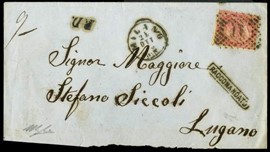 P.D.
MILANO
Signor Maggiore
Stefano Siccoli
RACCOMANDATA
Lugano